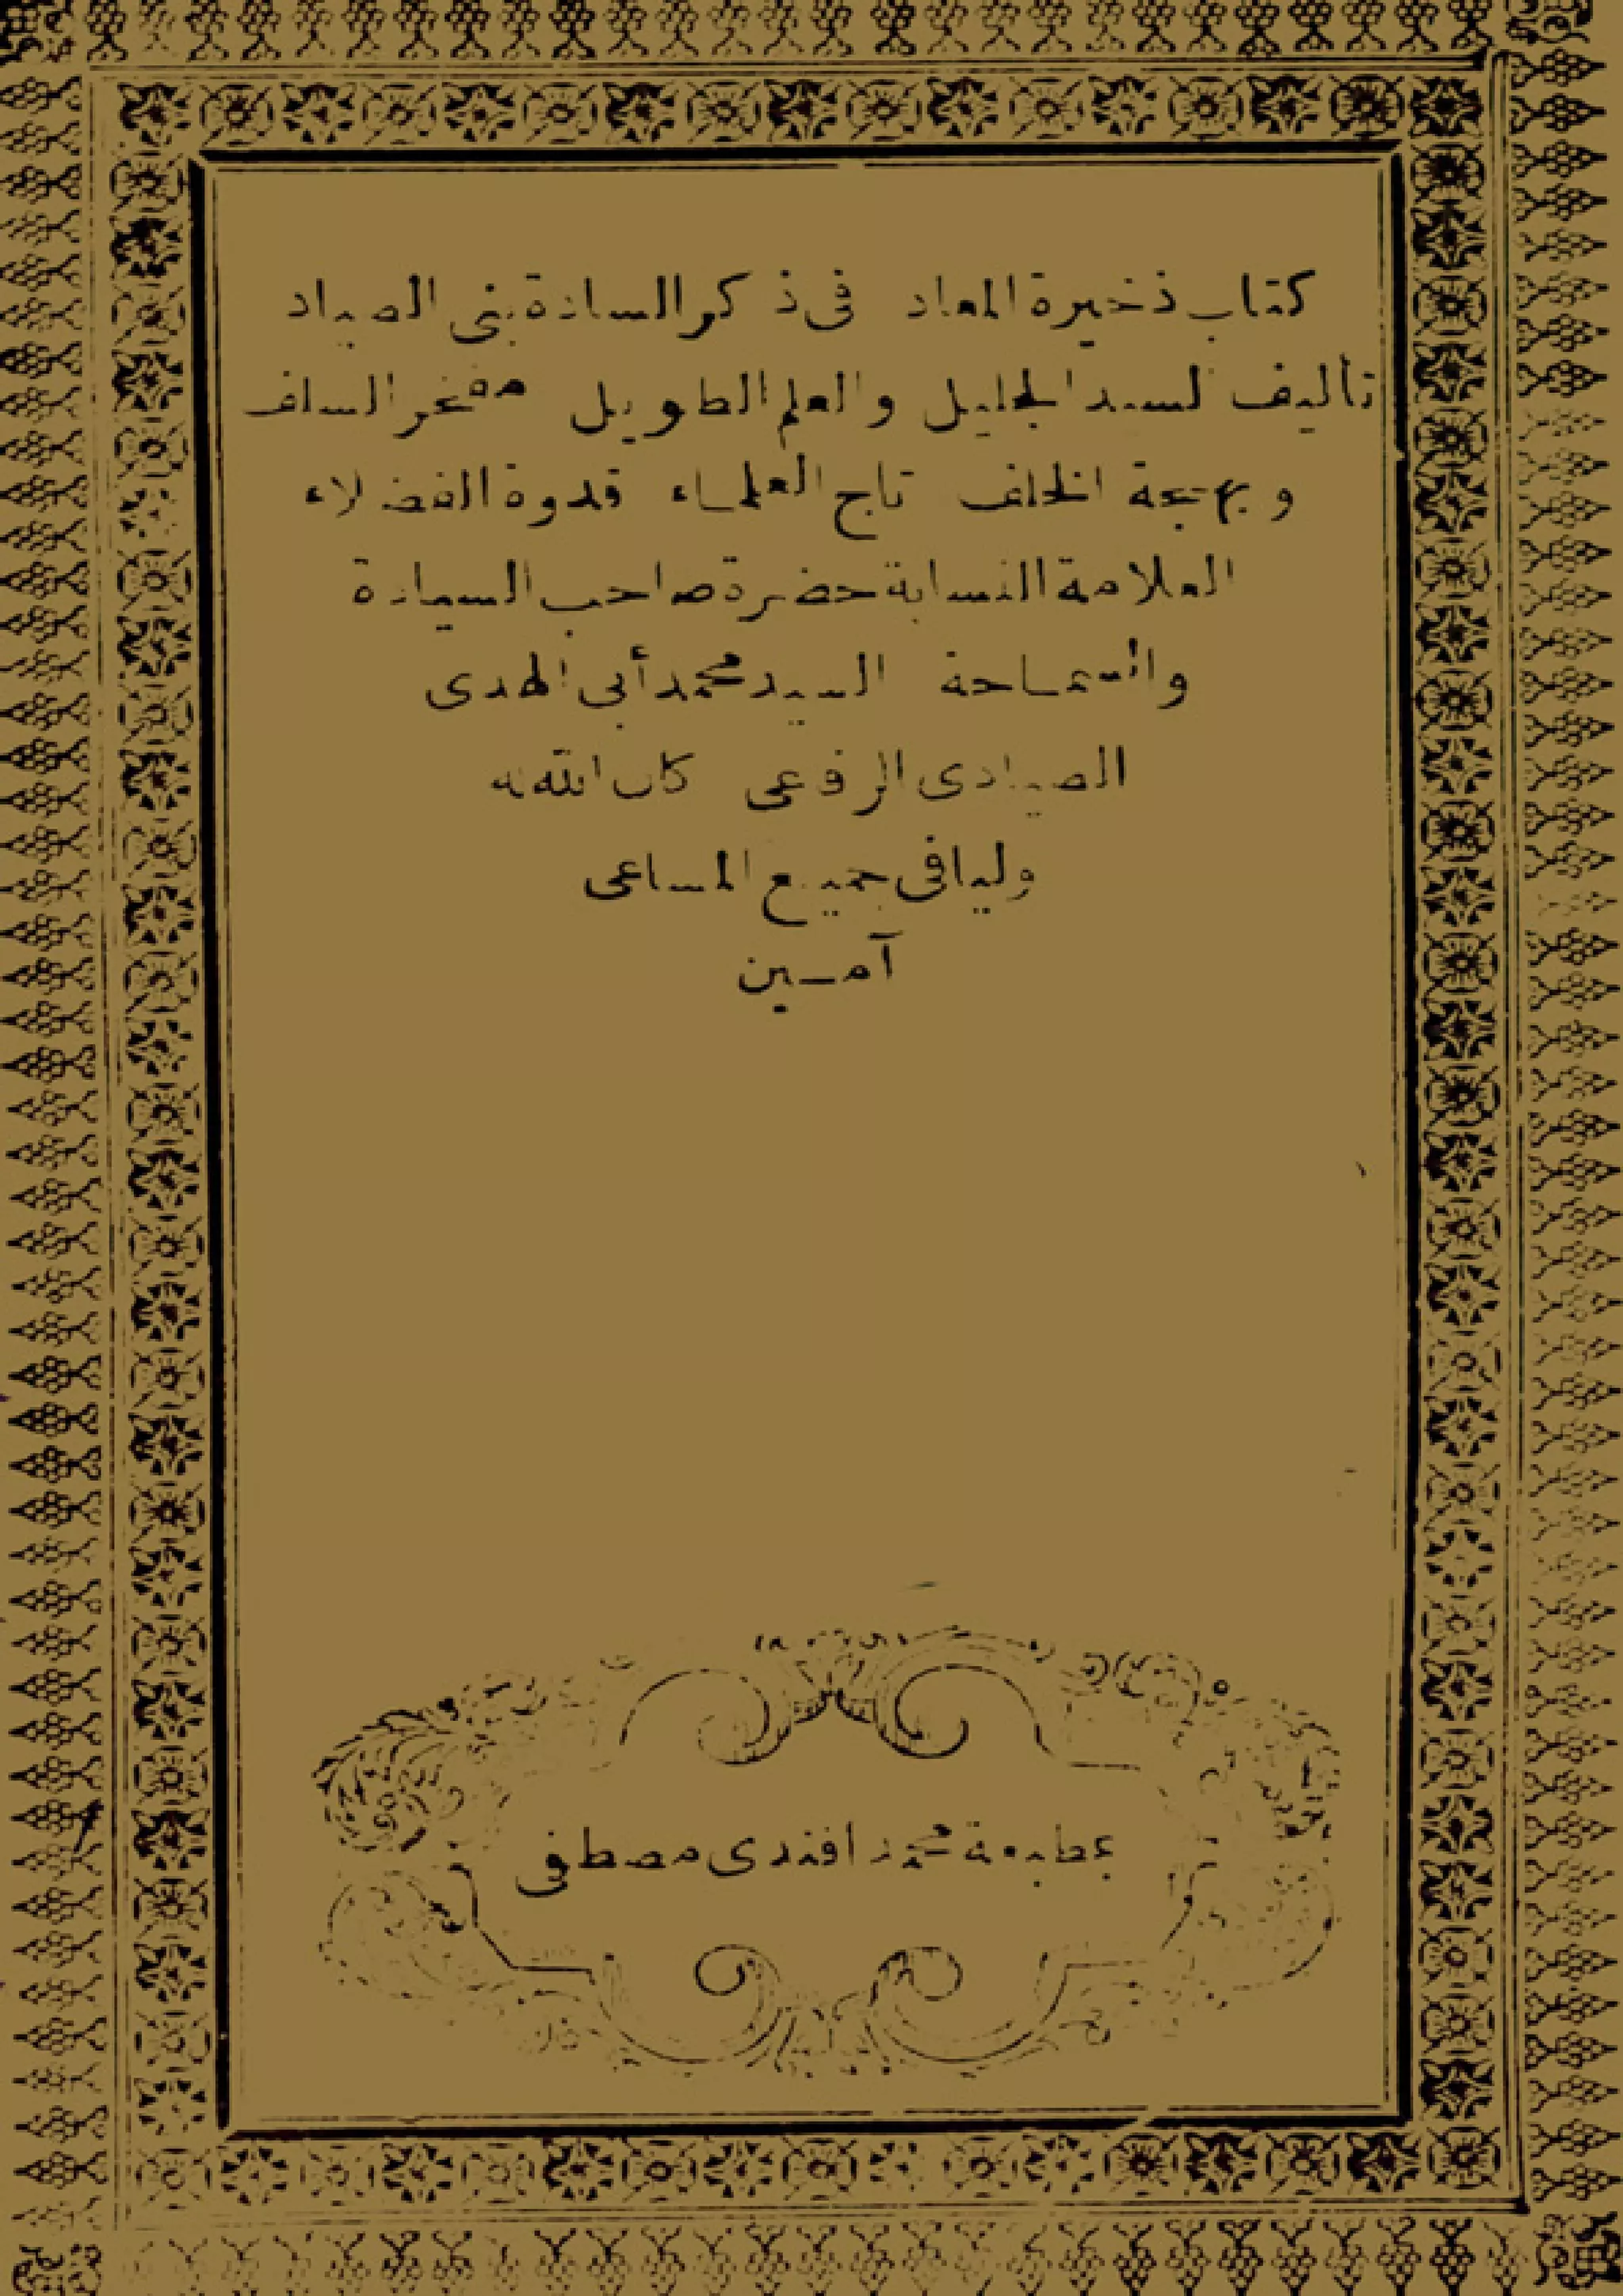 كتاب ذخيرة المعاد في ذكر السادة بني الصياد
تأليف السيد الجليل والعلم الطويل مفخر السلف
وبهجة الخلف تاج العلماء قدوة الفضلاء
العلامة النسابة حضرة صاحب السيادة
والسماحة السيد محمد أبي الهدى
الصيادى الرفاعى كان الله له
وليا فى جميع المساعى
آمين
بمطبعة محمد افندى مصطفى